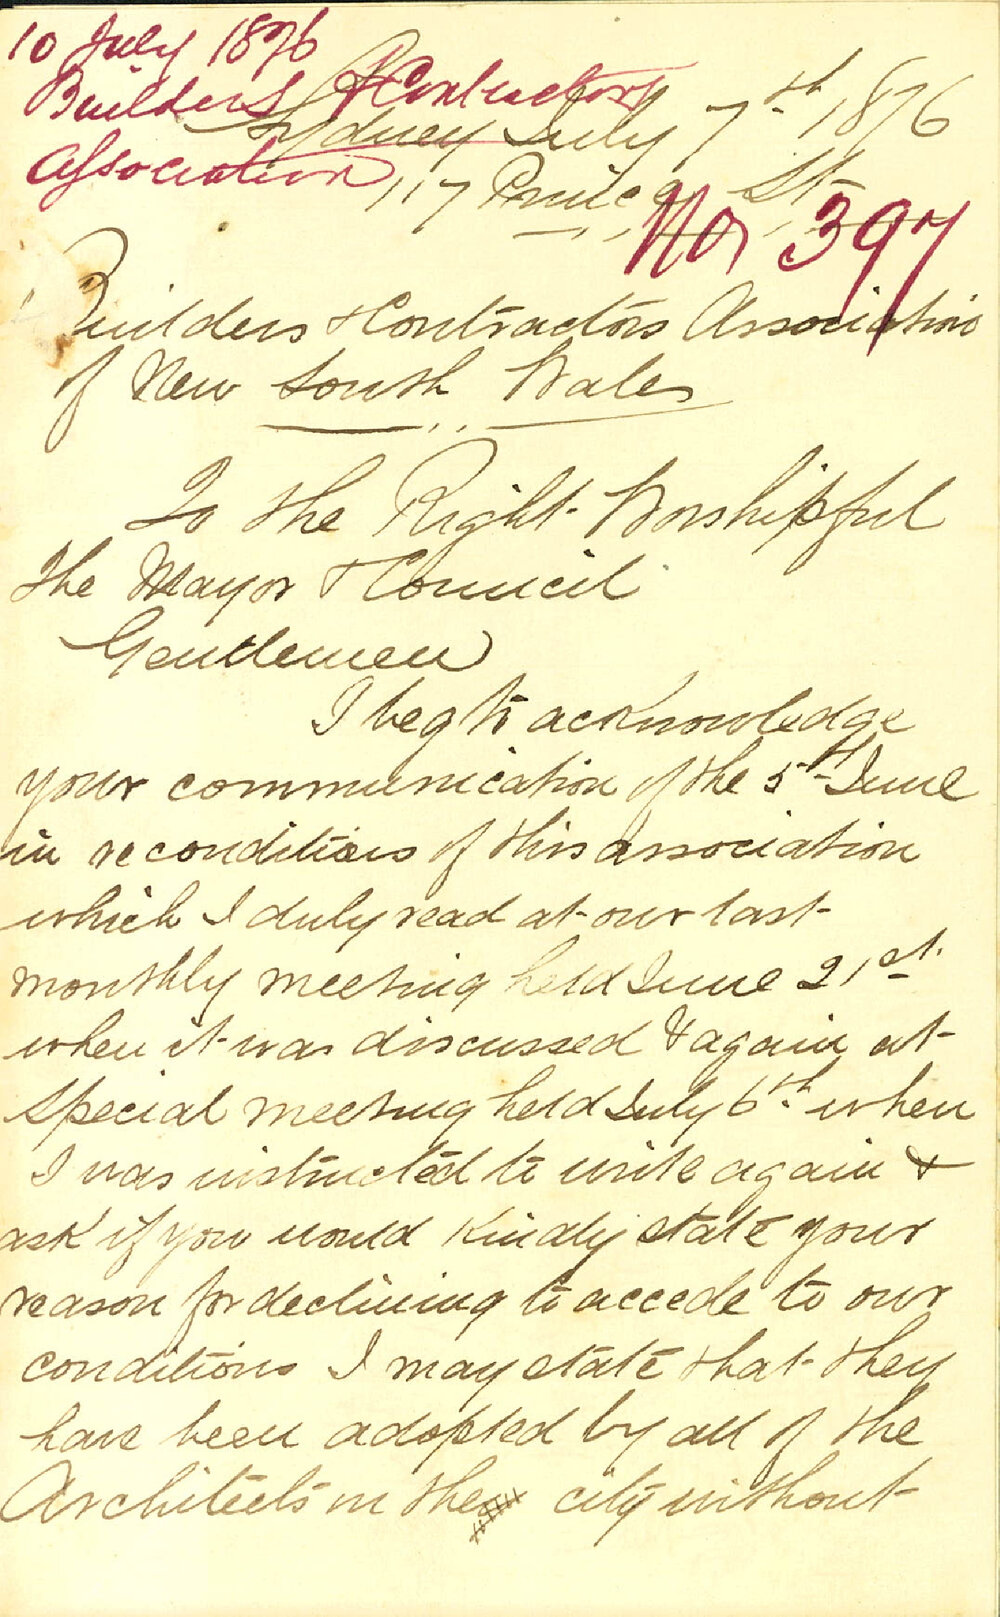 10 July 1876
Builders & Contractors
Association
Sydney July 7th 1876
117 Prince St
No 397
Builders & Contractors Association
of New South Wales
To the Right Worshipful
The Mayor & Council
Gentlemen
I beg to acknowledge
your communication of the 5th June
in re conditions of this association
which I duly read at our last
monthly meeting held June 21st
when it was discussed & again at
special meeting held July 6th when
I was instructed to write again &
ask if you would kindly state your
reason for declining to accede to our
conditions I may state that they
have been adopted by all of the
Architects in the city without